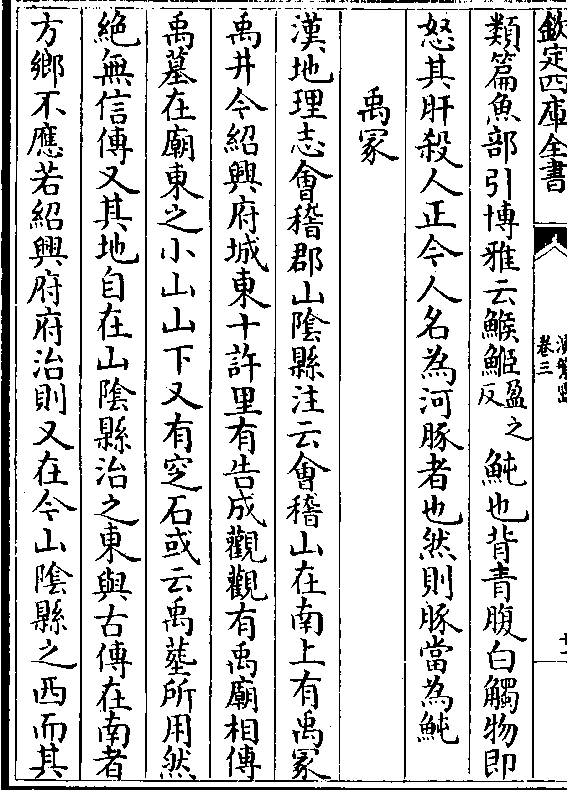 欽定四庫全書
卷三
類篇魚部引博雅云鯸䱌盈之反 魨也背青腹白觸物即
怒其肝殺人正今人名為河豚者也然則豚當為魨
禹冡
漢地理志會稽郡山陰縣注云會稽山在南上有禹冡
禹井今紹興府城東十許里有告成觀觀有禹廟相傳
禹墓在廟東之小山山下又有窆石或云禹塟所用然
絶無信傳又其地自在山陰縣治之東與古傳在南者
方鄉不應若紹興府府治則又在今山陰縣之西而其